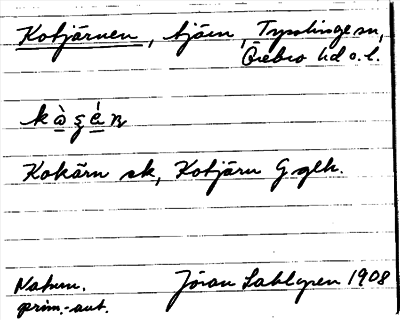 Kotjärnen, tjärn, Tysslinge sn,
Örebro hd o. l.
kàʂéɳ
Kokärn sk, Kotjärn G glk.
Natum.
prim.-aut.
Jöran Sahlgren 1908